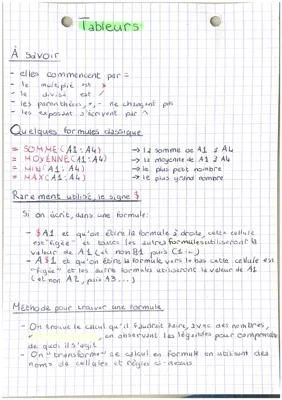 Tableurs
À savoir
- elles commencent par =
- le multiplié est *
- le divisé est /
- les parenthèses, +, - ne changent pas
- les exposant s'écrivent par ^
Quelques formules classique
= SOMME(A1:A4) → la somme de A1 à A4
= MOYENNE(A1:A4) → la moyenne de A1 à A4
= MIN(A1:A4) → le plus petit nombre
= MAX(A1:A4) → le plus grand nombre
Rarement utilisé, le signe $
Si on écrit, dans une formule:
- $A1 et qu'on étire la formule à droite, cette cellule
est "figée" et toutes les autres formules utiliseront la
valeur de A1 (et non B1 puis C1...)
- A$1 et qu'on étire la formule vers le bas cette cellule est
"figée" et les autre formules utiliseront la valeur de A1
(et non A2, puis A3...)
Méthode pour trouver une formule
- On trouve le calcul qu'il faudrait faire, avec des nombres,
en observant les légendes pour comprendre
de quoi il s'agit.
- On "transforme" ce calcul en formule en utilisant des
noms de cellules et règles ci-dessus